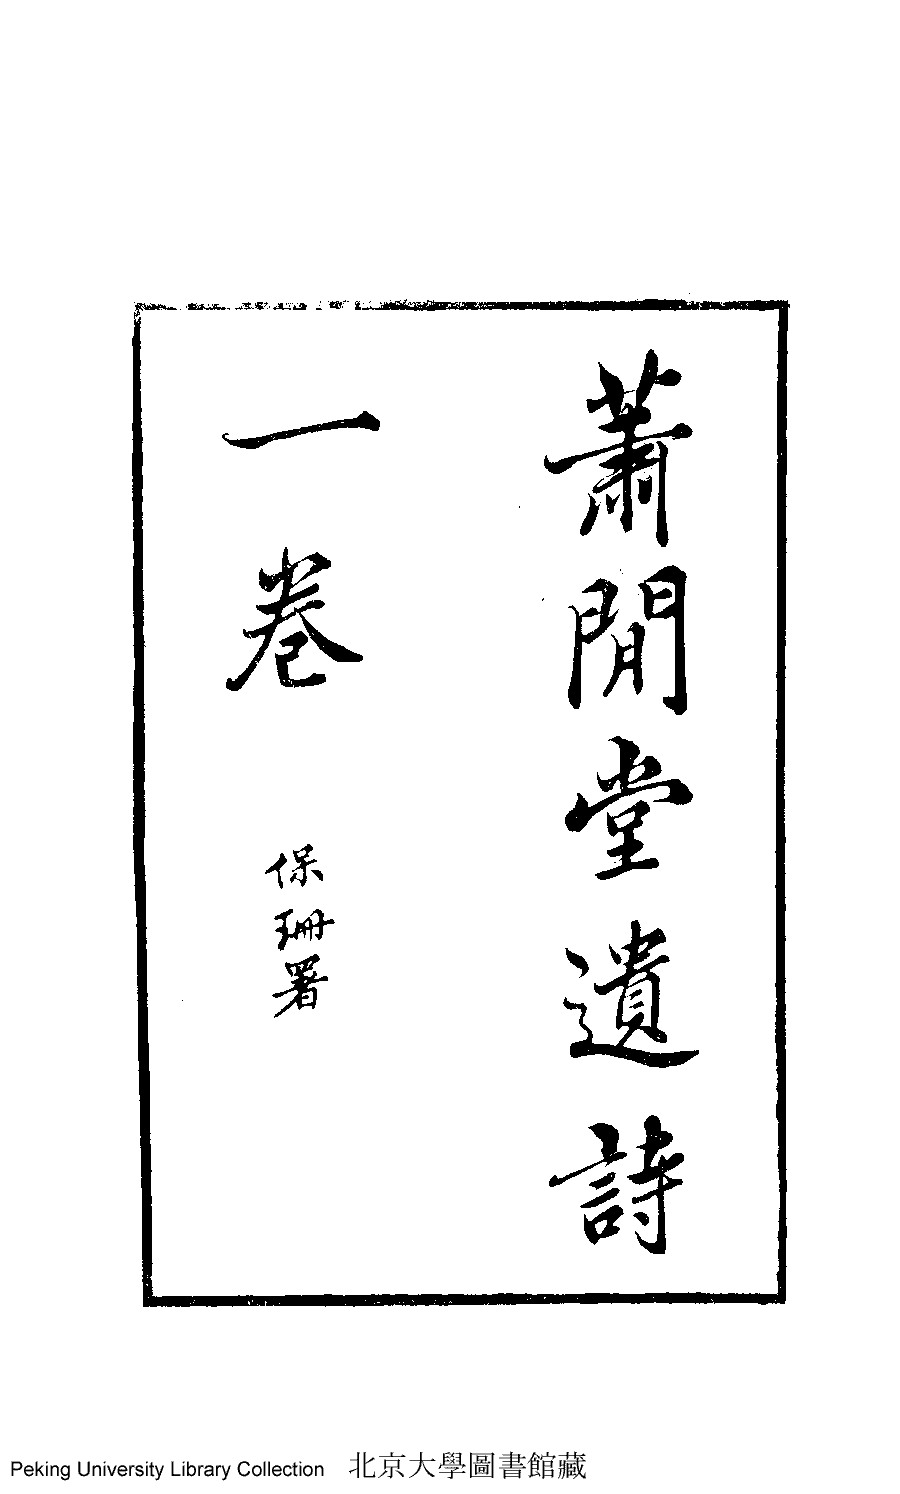 蕭閒堂遺詩
一卷
保珊署
Peking University Library Collection 北京大學圖書館藏